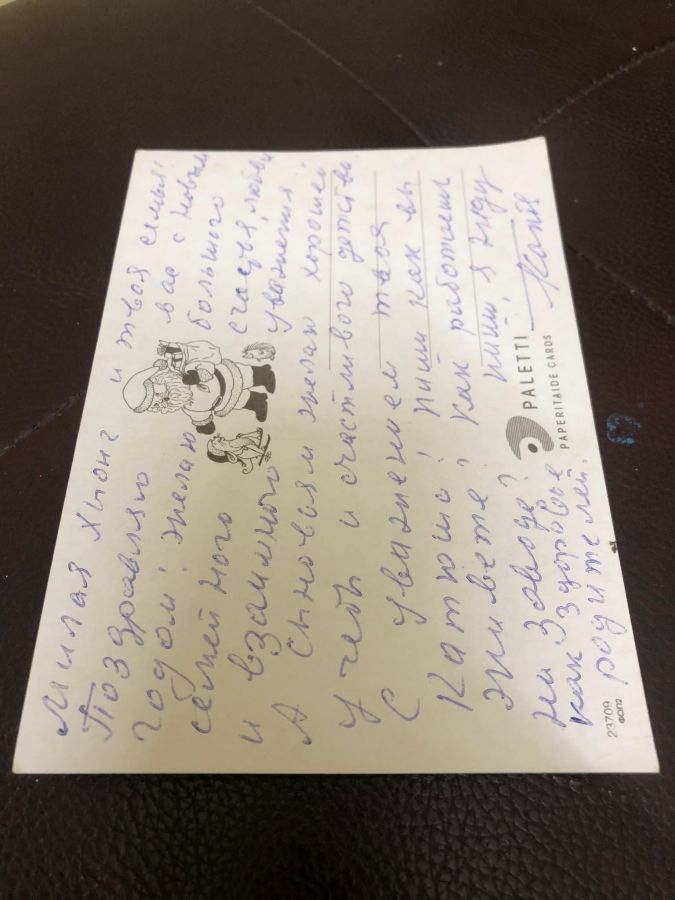 Милая Хыонг и твоя семья!
Поздравляю вас с новым
годом! желаю большого
семейного счастья, любви
и взаимного уважения
А сыновьям желаю хорошей
учебы и счастливого детства.
С уважением твоя
Катюша! пиши как вы
живете, как работаешь
на заводе? пиши, я жду
как здоровье Катя
родителей.
PALETTI
PAPERITAIDE CARDS
23709